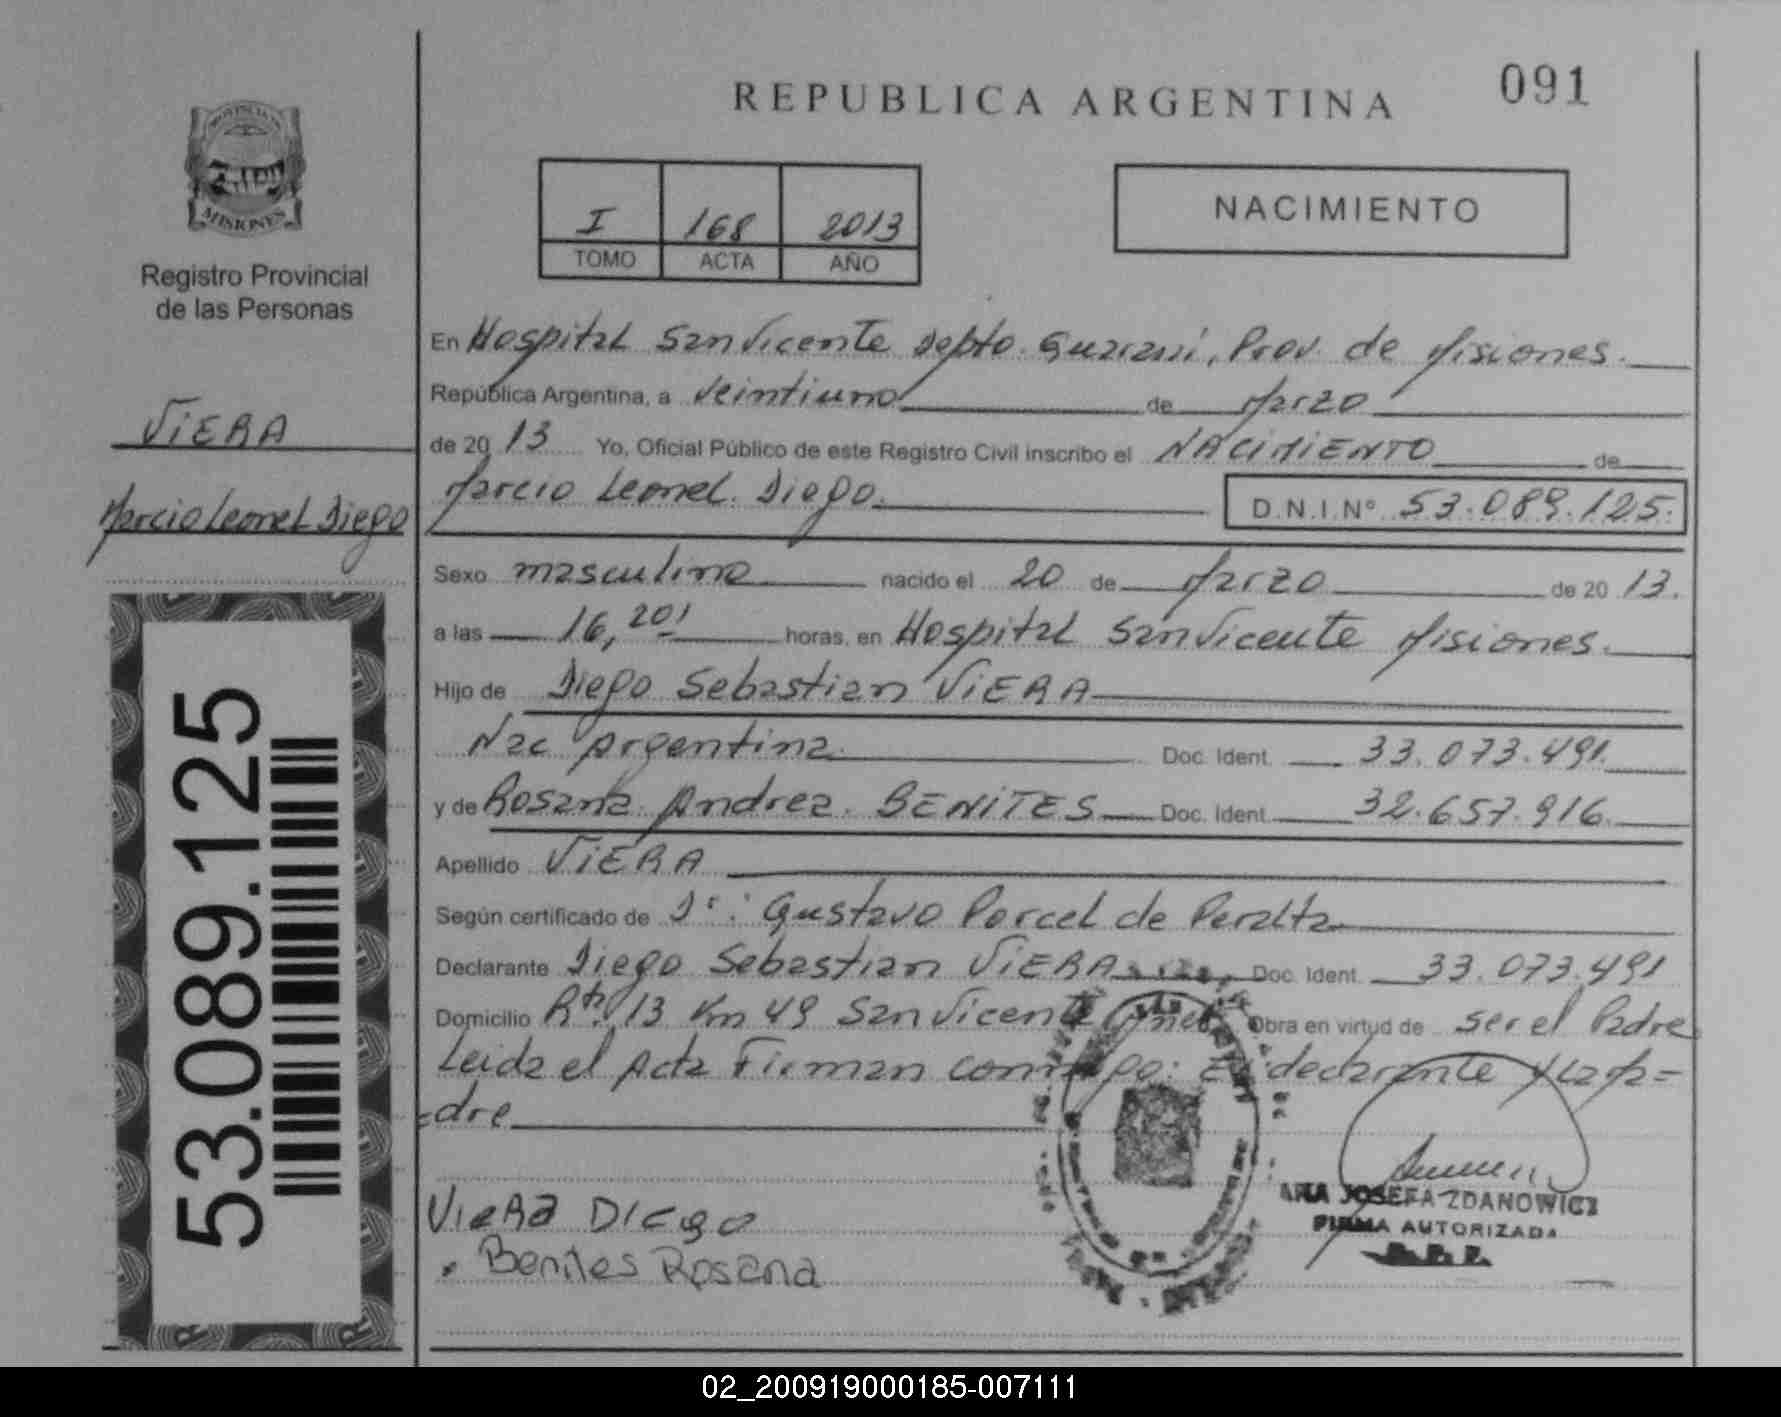 REPUBLICA ARGENTINA
091
MISIONES
Registro Provincial
de las Personas
I 168 2013
TOMO ACTA AÑO
NACIMIENTO
VIERA
Marcio Leonel Diego
53.089.125
En Hospital San Vicente Depto. Guaraní, Prov. de Misiones.
República Argentina, a veintiuno de Marzo
de 20 13 Yo, Oficial Público de este Registro Civil inscribo el NACIMIENTO de
Marcio Leonel Diego. D.N.I.Nº 53.089.125.
Sexo masculino nacido el 20 de Marzo de 20 13.
a las 16,20' horas, en Hospital San Vicente Misiones.
Hijo de Diego Sebastian VIERA
Nac Argentina. Doc. Ident. 33.073.491.
y de Rosana Andrea BENITES Doc. Ident. 32.657.916.
Apellido VIERA
Según certificado de Dr: Gustavo Porcel de Peralta
Declarante Diego Sebastian VIERA Doc. Ident. 33.073.491
Domicilio Rta. 13 Km 49 San Vicente Mnes. Obra en virtud de ser el Padre
Leida el Acta Firman conmigo: El declarante y la Ma=
=dre
VIERA DIEGO
Benites Rosana
ANA JOSEFA ZDANOWICZ
FIRMA AUTORIZADA
R. P. P.
02_200919000185-007111